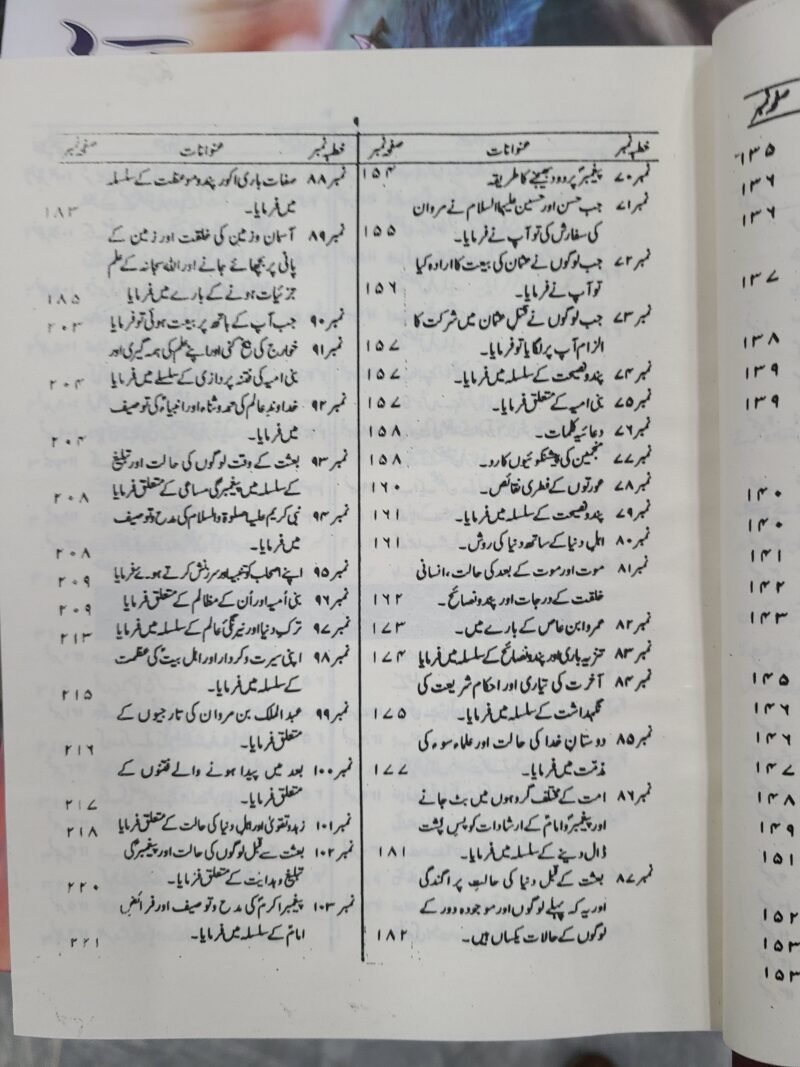 ۹
خطبہ نمبر عنوانات صفحہ نمبر
نمبر ۷۰ پیغمبرؐ پر درود بھیجنے کا طریقہ ۱۵۴
نمبر ۷۱ جب حسن اور حسین علیہما السلام نے مروان
کی سفارش کی تو آپ نے فرمایا۔ ۱۵۵
نمبر ۷۲ جب لوگوں نے عثمان کی بیعت کا ارادہ کیا
تو آپ نے فرمایا۔ ۱۵۶
نمبر ۷۳ جب لوگوں نے قتل عثمان میں شرکت کا
الزام آپ پر لگایا تو فرمایا۔ ۱۵۷
نمبر ۷۴ پند و نصیحت کے سلسلہ میں فرمایا۔ ۱۵۷
نمبر ۷۵ بنی امیہ کے متعلق فرمایا۔ ۱۵۷
نمبر ۷۶ دعائیہ کلمات۔ ۱۵۸
نمبر ۷۷ منجمین کی پیشگوئیوں کا رد۔ ۱۵۸
نمبر ۷۸ عورتوں کے فطری نقائص۔ ۱۶۰
نمبر ۷۹ پند و نصیحت کے سلسلہ میں فرمایا۔ ۱۶۱
نمبر ۸۰ اہل دنیا کے ساتھ دنیا کی روش۔ ۱۶۱
نمبر ۸۱ موت اور موت کے بعد کی حالت، انسانی
خلقت کے درجات اور پند و نصائح۔ ۱۶۲
نمبر ۸۲ عمرو ابن عاص کے بارے میں۔ ۱۷۳
نمبر ۸۳ تنزیہ باری اور پند و نصائح کے سلسلہ میں فرمایا ۱۷۴
نمبر ۸۴ آخرت کی تیاری اور احکام شریعت کی
نگہداشت کے سلسلہ میں فرمایا۔ ۱۷۵
نمبر ۸۵ دوستانِ خدا کی حالت اور علماء سوء کی
مذمت میں فرمایا۔ ۱۷۷
نمبر ۸۶ امت کے مختلف گروہوں میں بٹ جانے
اور پیغمبرؐ و امامؑ کے ارشادات کو پس پشت
ڈال دینے کے سلسلہ میں فرمایا۔ ۱۸۱
نمبر ۸۷ بعثت کے قبل دنیا کی حالتِ پراگندگی
اور یہ کہ پہلے لوگوں اور موجودہ دور کے
لوگوں کے حالات یکساں ہیں۔ ۱۸۲
خطبہ نمبر عنوانات صفحہ نمبر
نمبر ۸۸ صفات باری اور پند و موعظت کے سلسلہ
میں فرمایا۔ ۱۸۳
نمبر ۸۹ آسمان و زمین کی خلقت اور زمین کے
پانی پر بچھائے جانے اور اللہ سبحانہ کے علم
جزئیات ہونے کے بارے میں فرمایا ۱۸۵
نمبر ۹۰ جب آپ کے ہاتھ پر بیعت ہوئی تو فرمایا ۲۰۳
نمبر ۹۱ خوارج کی بیخ کنی اور اپنے علم کی ہمہ گیری اور
بنی امیہ کی فتنہ پردازی کے سلسلے میں فرمایا ۲۰۴
نمبر ۹۲ خداوند عالم کی حمد و ثناء اور انبیاءؑ کی توصیف
میں فرمایا۔ ۲۰۴
نمبر ۹۳ بعثت کے وقت لوگوں کی حالت اور تبلیغ
کے سلسلہ میں پیغمبرؐ کی مساعی کے متعلق فرمایا ۲۰۸
نمبر ۹۴ نبی کریم علیہ الصلوۃ والسلام کی مدح و توصیف
میں فرمایا۔ ۲۰۸
نمبر ۹۵ اپنے اصحاب کو تنبیہ اور سرزنش کرتے ہوئے فرمایا ۲۰۹
نمبر ۹۶ بنی اُمیہ اور اُن کے مظالم کے متعلق فرمایا ۲۰۹
نمبر ۹۷ ترک دنیا اور نیرنگئ عالم کے سلسلہ میں فرمایا ۲۱۳
نمبر ۹۸ اپنی سیرت و کردار اور اہل بیتؑ کی عظمت
کے سلسلہ میں فرمایا۔ ۲۱۵
نمبر ۹۹ عبد الملک بن مروان کی تاراجیوں کے
متعلق فرمایا۔ ۲۱۶
نمبر ۱۰۰ بعد میں پیدا ہونے والے فتنوں کے
متعلق فرمایا۔ ۲۱۷
نمبر ۱۰۱ زہد و تقویٰ اور اہل دنیا کی حالت کے متعلق فرمایا ۲۱۸
نمبر ۱۰۲ بعثت سے قبل لوگوں کی حالت اور پیغمبرؐ کی
تبلیغ و ہدایت کے متعلق فرمایا۔ ۲۲۰
نمبر ۱۰۳ پیغمبر اکرمؐ کی مدح و توصیف اور فرائضِ
امامؑ کے سلسلہ میں فرمایا۔ ۲۲۱
صفحہ نمبر
۱۳۵
۱۳۶
۱۳۶
۱۳۷
۱۳۸
۱۳۹
۱۳۹
۱۴۰
۱۴۰
۱۴۱
۱۴۲
۱۴۳
۱۴۵
۱۴۶
۱۴۶
۱۴۷
۱۴۸
۱۴۹
۱۵۱
۱۵۲
۱۵۳
۱۵۳